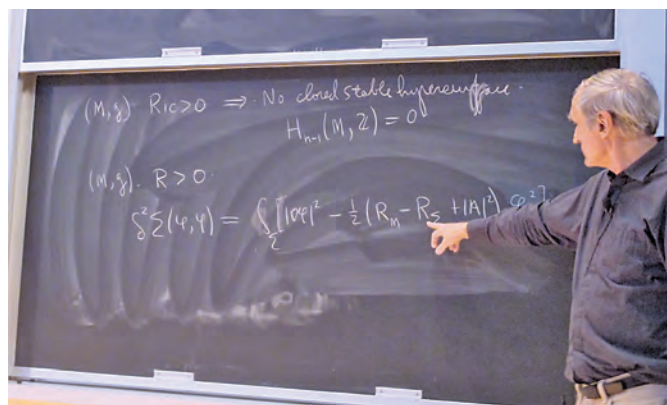 (M,g) Ric>0 ⇒ No closed stable hypersurface.
H_{n-1}(M,Z)=0
(M,g). R>0.
δ²Σ(φ,φ) = ∫_Σ [|∇φ|² - ½ (R_M - R_Σ + |A|²) φ²]